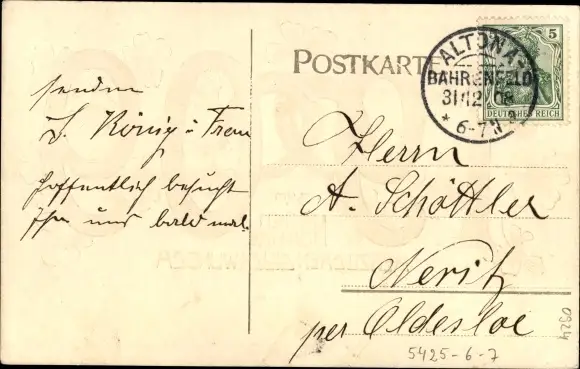 POSTKARTE
ALTONA-
BAHRENFELD
31.12.08
* 6-7 N
5
DEUTSCHES REICH
senden
J. König u Frau
Hoffentlich besucht
Ihr uns bald mal.
Herrn
A. Schöttler
Neritz
per Oldesloe
5425-6-7
0324